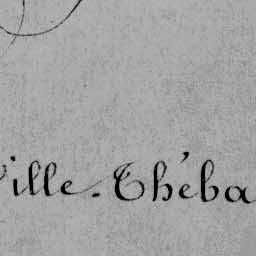 ille-Théba